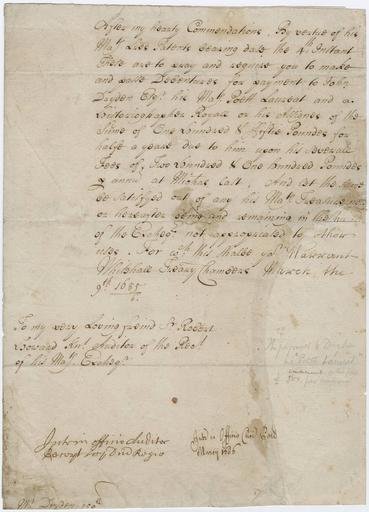 After my hearty Commendations, By vertue of his
Ma:ty Lrs Patents bearing date the 4th Instant
These are to pray and require you to make
and passe Debentures for payment to John
Dryden Esqr his Maty Poett Laureat and
Historiographer Royall or his Assignes of the
Sume of One Hundred & Fiftie Poundes for
halfe a yeare due to him upon his severall
Fees of Two Hundred & One Hundred Poundes
p annu at Michas last. And let the same
be satisfyed out of any his Maty Treasure now
or hereafter being and remaining in the
of the Excheqr not appropriated to other
uses. For wch this shalbe yor Warrant
Whitehall Treasury Chambers March the
9th 1685/6
To my very Loving freind Sr Robert
Howard Knt Auditor of the Rect
of his Maty Excheqr
The payment to Dryden
as Poett Laureat
Intr in officio Auditor
Recept Scacc Dno Regis
Intr in Officio Cleri Pell
Mr Dryden